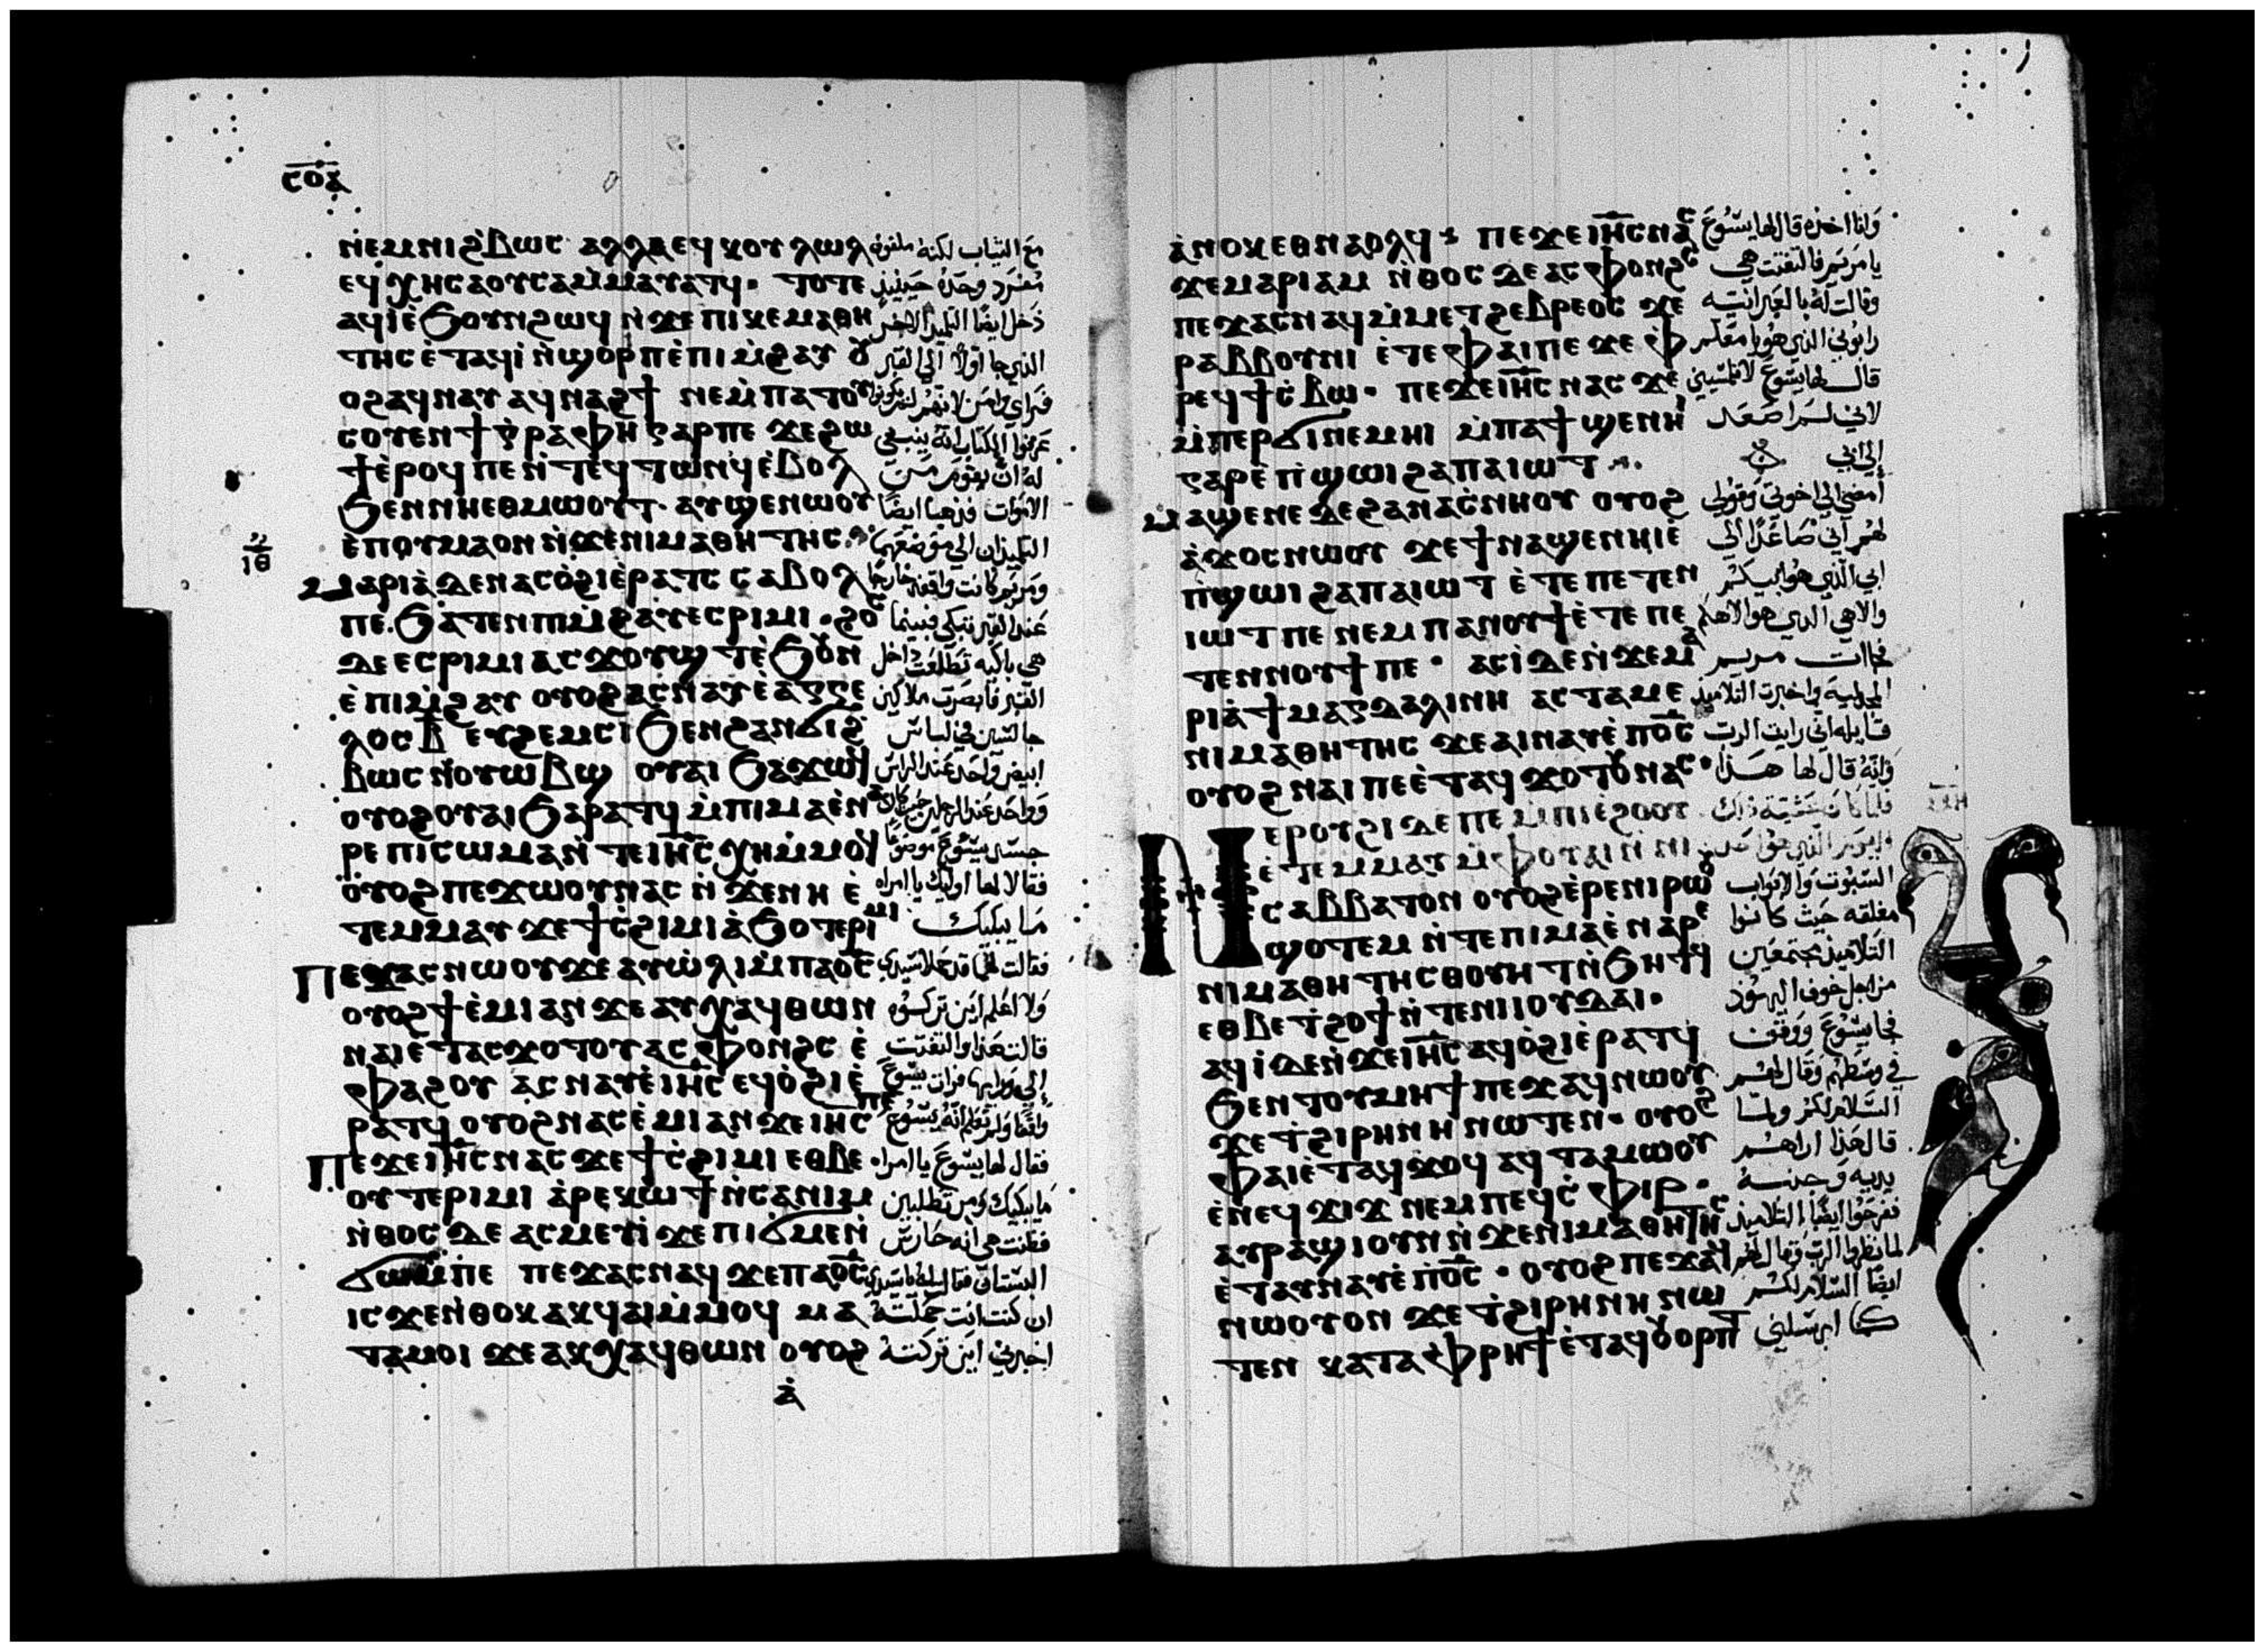 ⲥⲟⲁ
ⲛ̀ⲉⲙⲛⲓϩ̀ⲃⲱⲥ ⲁⲗⲗⲁⲉϥⲕⲟⲩⲗⲱⲗ
ⲉϥⲭⲏⲥⲁⲟⲩⲥⲁⲙ̀ⲙⲁⲩⲁⲧϥ· ⲧⲟⲧⲉ
ⲁϥⲓⲉ̀ϧⲟⲩⲛϩⲱϥ ⲛ̀ϫⲉⲡⲓⲕⲉⲙⲁⲑⲏ
ⲧⲏⲥ ⲉ̀ⲧⲁϥⲓ̀ ⲛ̀ϣⲟⲣⲡ ⲉ̀ⲡⲓⲙ̀ϩⲁⲩ ⲟⲩ
ⲟϩⲁϥⲛⲁⲩ ⲁϥⲛⲁϩϯ ⲛⲉⲙ̀ⲡⲁⲧⲟⲩ
ⲥⲟⲩⲉⲛϯⲅ̀ⲣⲁⲫⲏ ⲅⲁⲣⲡⲉ ϫⲉϩⲱ
ϯⲉ̀ⲣⲟϥ ⲡⲉ ⲛ̀ⲧⲉϥⲧⲱⲛϥ ⲉ̀ⲃⲟⲗ
ϧⲉⲛⲛⲏⲉⲑⲙⲱⲟⲩⲧ· ⲁⲩϣⲉⲛⲱⲟⲩ
ⲉ̀ⲡⲟⲩⲙⲁⲟⲛ ⲛ̀ϫⲉⲛⲓⲙⲁⲑⲏⲧⲏⲥ
ⲙⲁⲣⲓⲁ̀ ⲇⲉⲛⲁⲥⲟ̀ϩⲓⲉ̀ⲣⲁⲧⲥ ⲥⲁⲃⲟⲗ
ⲡⲉ· ϧⲁ̀ⲧⲉⲛⲡⲓⲙ̀ϩⲁⲩⲉⲥⲣⲓⲙⲓ · ϩⲟⲥ
ⲇⲉ ⲉⲥⲣⲓⲙⲓ ⲁⲥϫⲟⲩϣⲧ ⲉ̀ϧⲟⲩⲛ
ⲉ̀ⲡⲓⲙ̀ϩⲁⲩ ⲟⲩⲟϩⲁⲥⲛⲁⲩⲉ̀ⲁⲅⲅⲉ
ⲗⲟⲥ ⲃ̅ ⲉⲩϩⲉⲙⲥⲓ ϧⲉⲛϩⲁⲛϭⲓϩ̀
ⲃⲱⲥ ⲛ̀ⲟⲩⲱⲃϣ ⲟⲩⲁⲓ ϧⲁϫⲱϥ
ⲟⲩⲟϩⲟⲩⲁⲓ ϧⲁⲣⲁⲧϥ ⲙ̀ⲡⲓⲙⲁⲉ̀ⲛⲁ
ⲣⲉ ⲡⲓⲥⲱⲙⲁ ⲛ̀ⲧⲉⲓⲏ̅ⲥ ⲭⲏⲙ̀ⲙⲟϥ
ⲟⲩⲟϩⲡⲉϫⲱⲟⲩⲛⲁⲥ ⲛ̀ϫⲉⲛⲏ ⲉ̀
ⲧⲉⲙⲙⲁⲩ ϫⲉϯⲥ̀ϩⲓⲙⲓ ⲁ̀ϧⲟⲧⲉⲣⲓⲙⲓ
ⲡⲉϫⲁⲥⲛⲱⲟⲩϫⲉⲁⲩⲱ̀ⲗⲓⲙ̀ⲡⲁⲟ̅ⲥ
ⲟⲩⲟϩϯⲉ̀ⲙⲓⲁⲛ ϫⲉⲁⲩⲭⲁϥⲑⲱⲛ
ⲛⲁⲓⲉ̀ⲧⲁⲥϫⲟⲧⲟⲩⲁⲥⲫⲟⲛϩⲥ ⲉ̀
ⲫⲁϩⲟⲩ ⲁⲥⲛⲁⲩⲉ̀ⲓⲏ̅ⲥ ⲉϥⲟ̀ϩⲓⲉ̀
ⲣⲁⲧϥ ⲟⲩⲟϩⲛⲁⲥⲉ̀ⲙⲓⲁⲛϫⲉⲓⲏⲥⲡⲉ
ⲡⲉϫⲉⲓⲏ̅ⲥⲛⲁⲥ ϫⲉϯⲥ̀ϩⲓⲙⲓ ⲉⲑⲃⲉ·
ⲟⲩ ⲧⲉⲣⲓⲙⲓ ⲁ̀ⲣⲉⲕⲱϯⲛ̀ⲥⲁⲛⲓⲙ
ⲛ̀ⲑⲟⲥ ⲇⲉ ⲁⲥⲙⲉⲩⲓ̀ ϫⲉⲡⲓϭⲙⲉⲛ̀
ϭⲱⲙⲡⲉ ⲡⲉϫⲁⲥⲛⲁϥ ϫⲉⲡⲁⲟ̅ⲥ
ⲓⲥϫⲉⲛ̀ⲑⲟⲕ ⲁⲕϥⲁⲓⲙ̀ⲙⲟϥ ⲙⲁ
ⲧⲁⲙⲟⲓ ϫⲉⲁⲕⲭⲁϥⲑⲱⲛ ⲟⲩⲟϩ
ⲁ̀
مع الثياب لكنه ملفوفه
مفرد وحده حينيذ
دخل ايضًا التلميذ الاخر
الذي جا اولًا الي القبر
فراي وامن لانهم لم يكونوا
عرفوا الكتاب انه ينبغي
له ان يقوم من
الاموات فذهبا ايضًا
التلميذان الي موضعهما
ومريم كانت واقفه خارجا
عند القبر تبكي فبينما
هي باكيه تطلعت داخل
القبر فابصرت ملاكين
جالسين في لباس
ابيض واحد عند الراس
وواحد عند الرجلين حيث كان
جسد يسوع موضوعًا
فقالا لها اوليك يا امراه
ما يبكيك
فقالت لهما قد حملا سيدي
ولا اعلم اين تركوه
قالت هذا والتفتت
الي ورايها فرات يسوع
واقفًا ولم تعلم انه يسوع
فقال لها يسوع يا امراه
ما يبكيك ومن تطلبين
فظنت هي انه حارس
البستان فقالت له يا سيدي
ان كنت انت حملته
اخبرني اين تركته
ⲁ̀ⲛⲟⲕⲉⲑⲛⲁⲟⲗϥ ⲡⲉϫⲉⲓⲏ̅ⲥⲛⲁⲥ
ϫⲉⲙⲁⲣⲓⲁⲙ ⲛ̀ⲑⲟⲥ ⲇⲉⲁⲥⲫⲟⲛϩⲥ
ⲡⲉϫⲁⲥⲛⲁϥⲙ̀ⲙⲉⲧϩⲉⲃⲣⲉⲟⲥ ϫⲉ
ⲣⲁⲃⲃⲟⲩⲛⲓ ⲉ̀ⲧⲉⲫⲁⲓⲡⲉ ϫⲉ ⲫ
ⲣⲉϥϯⲥ̀ⲃⲱ· ⲡⲉϫⲉⲓⲏ̅ⲥ ⲛⲁⲥ ϫⲉ
ⲙ̀ⲡⲉⲣϭⲓⲛⲉⲙⲏⲓ ⲙ̀ⲡⲁϯϣⲉⲛⲏⲓ
ⲅⲁⲣⲉ̀ⲡ̀ϣⲱⲓ ϩⲁⲡⲁⲓⲱⲧ
ⲙⲁϣⲉⲛⲉ ⲇⲉϩⲁⲛⲁⲥ̀ⲛⲏⲟⲩ ⲟⲩⲟϩ
ⲁ̀ϫⲟⲥⲛⲱⲟⲩ ϫⲉϯⲛⲁϣⲉⲛⲏⲓⲉ̀
ⲡ̀ϣⲱⲓ ϩⲁⲡⲁⲓⲱⲧ ⲉ̀ⲧⲉⲡⲉⲧⲉⲛ
ⲓⲱⲧ ⲡⲉ ⲛⲉⲙⲡⲁⲛⲟⲩϯⲉ̀ⲧⲉ ⲡⲉ
ⲧⲉⲛⲛⲟⲩϯ ⲡⲉ· ⲁⲥⲓ̀ ⲇⲉⲛ̀ϫⲉⲙⲁ
ⲣⲓⲁ̀ ϯⲙⲁⲅⲇⲁⲗⲓⲛⲏ ⲁⲥⲧⲁⲙⲉ
ⲛⲓⲙⲁⲑⲏⲧⲏⲥ ϫⲉⲁⲓⲛⲁⲩⲉ̀ⲡⲟ̅ⲥ
ⲟⲩⲟϩ ⲛⲁⲓⲡⲉⲉ̀ⲧⲁϥϫⲟⲧⲟⲩⲛⲁⲥ·
ⲛⲉⲣⲟⲩϩⲓ ⲇⲉⲡⲉ ⲙ̀ⲡⲓⲉ̀ϩⲟⲟⲩ
ⲉ̀ⲧⲉⲙⲙⲁⲩ ⲙ̀ⲫⲟⲩⲁⲓⲛ̀ⲛⲓ
ⲥⲁⲃⲃⲁⲧⲟⲛ ⲟⲩⲟϩⲉ̀ⲣⲉⲛⲓⲣⲱⲟⲩ
ϣⲟⲧⲉⲙ ⲛ̀ⲧⲉⲡⲓⲙⲁⲉ̀ⲛⲁⲣⲉ
ⲛⲓⲙⲁⲑⲏⲧⲏⲥⲑⲟⲩⲏⲧⲛ̀ϧⲏⲧϥ
ⲉⲑⲃⲉⲧ̀ϩⲟϯⲛ̀ⲧⲉⲛⲓⲓⲟⲩⲇⲁⲓ·
ⲁϥⲓ̀ⲇⲉⲛ̀ϫⲉⲓⲏ̅ⲥ ⲁϥⲟ̀ϩⲓⲉ̀ⲣⲁⲧϥ
ϧⲉⲛⲧⲟⲩⲙⲏϯ ⲡⲉϫⲁϥⲛⲱⲟⲩ
ϫⲉⲧ̀ϩⲓⲣⲏⲛⲏ ⲛⲱⲧⲉⲛ· ⲟⲩⲟϩ
ⲫⲁⲓⲉ̀ⲧⲁϥϫⲟϥ ⲁϥⲧⲁⲙⲱⲟⲩ
ⲉ̀ⲛⲉϥϫⲓϫ ⲛⲉⲙⲡⲉϥⲥ̀ⲫⲓⲣ·
ⲁⲩⲣⲁϣⲓⲟⲩⲛ ⲛ̀ϫⲉⲛⲓⲙⲁⲑⲏⲧⲏⲥ
ⲉ̀ⲧⲁⲩⲛⲁⲩⲉ̀ⲡ̀ⲟ̅ⲥ · ⲟⲩⲟϩⲡⲉϫⲁϥ
ⲛⲱⲟⲩⲟⲛ ϫⲉⲧ̀ϩⲓⲣⲏⲛⲏ ⲛⲱ
ⲧⲉⲛ ⲕⲁⲧⲁⲫⲣⲏϯⲉ̀ⲧⲁϥⲟⲩⲟⲣⲡⲧ
وانا اخذه قال لها يسوع
يا مريم فالتفتت هي
وقالت له بالعبرانيه
رابوني الذي هو يا معلم
قال لها يسوع لا تلمسيني
لاني لم اصعد
الي ابي
امضي الي اخوتي وقولي
لهم اني صاعدًا الي
ابي الذي هو ابيكم
والاهي الذي هو الاهكم
فجات مريم
المجدليه واخبرت التلاميذ
قايله اني رايت الرب
وانه قال لها هذا
فلما كان عشية ذلك
السبوت والابواب
مغلقه حيث كانوا
التلاميذ مجتمعين
من اجل خوف اليهود
فجا يسوع ووقف
في وسطهم وقال لهم
السلام لكم ولما
قال هذا اراهم
يديه وجنبه
ففرحوا ايضًا التلاميذ
لما نظروا الرب وقال لهم
ايضًا السلام لكم
كما ارسلني